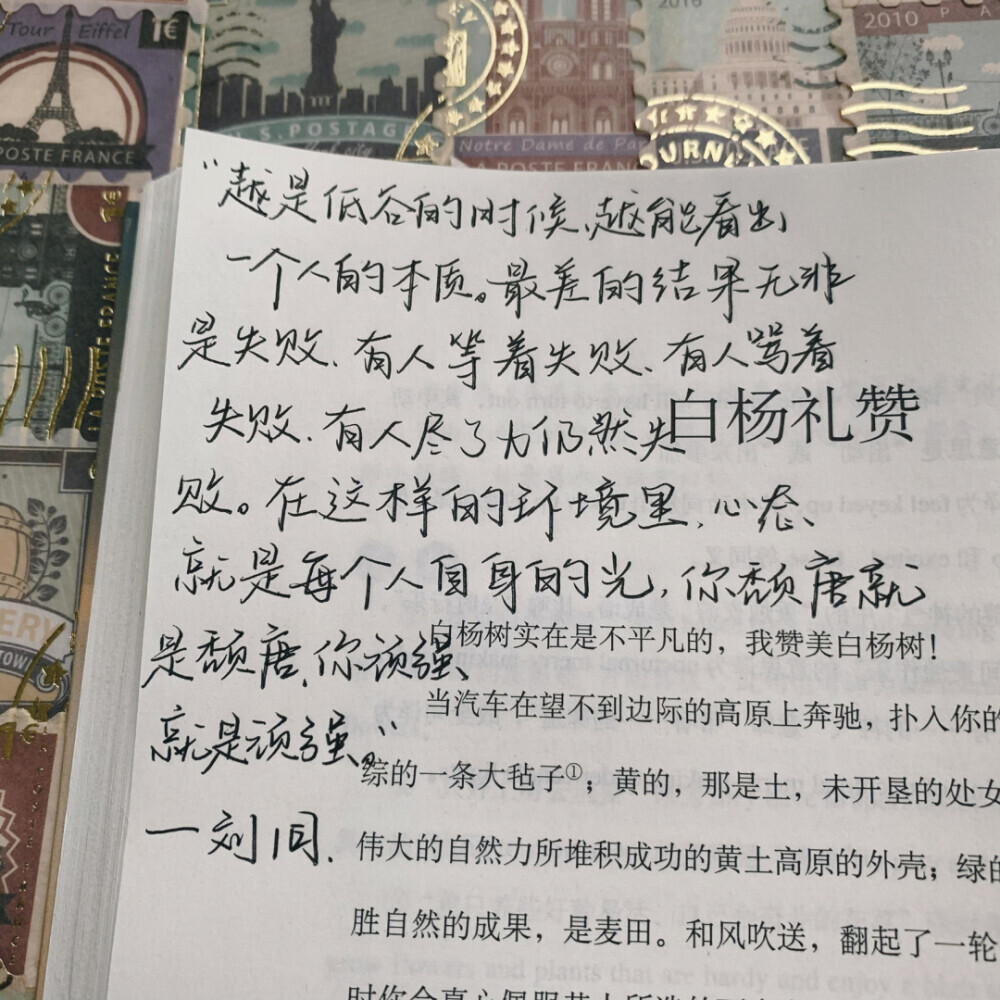 Tour Eiffel 1€
POSTE FRANCE
U.S. POSTAGE
Notre Dame de Par
LA POSTE FRANCE
2016
URN
2010 P A
FRANCE
ERY
TOW
"越是低谷的时候、越能看出
一个人的本质。最差的结果无非
是失败、有人等着失败、有人骂着
失败、有人尽了力仍然失
白杨礼赞
败。在这样的环境里、心态、
就是每个人自身的光，你颓唐就
是颓唐、你顽强、
就是顽强。"
一刘同、
白杨树实在是不平凡的，我赞美白杨树！
当汽车在望不到边际的高原上奔驰，扑入你的
综的一条大毡子①；黄的，那是土，未开垦的处女
伟大的自然力所堆积成功的黄土高原的外壳；绿的
胜自然的成果，是麦田。和风吹送，翻起了一轮